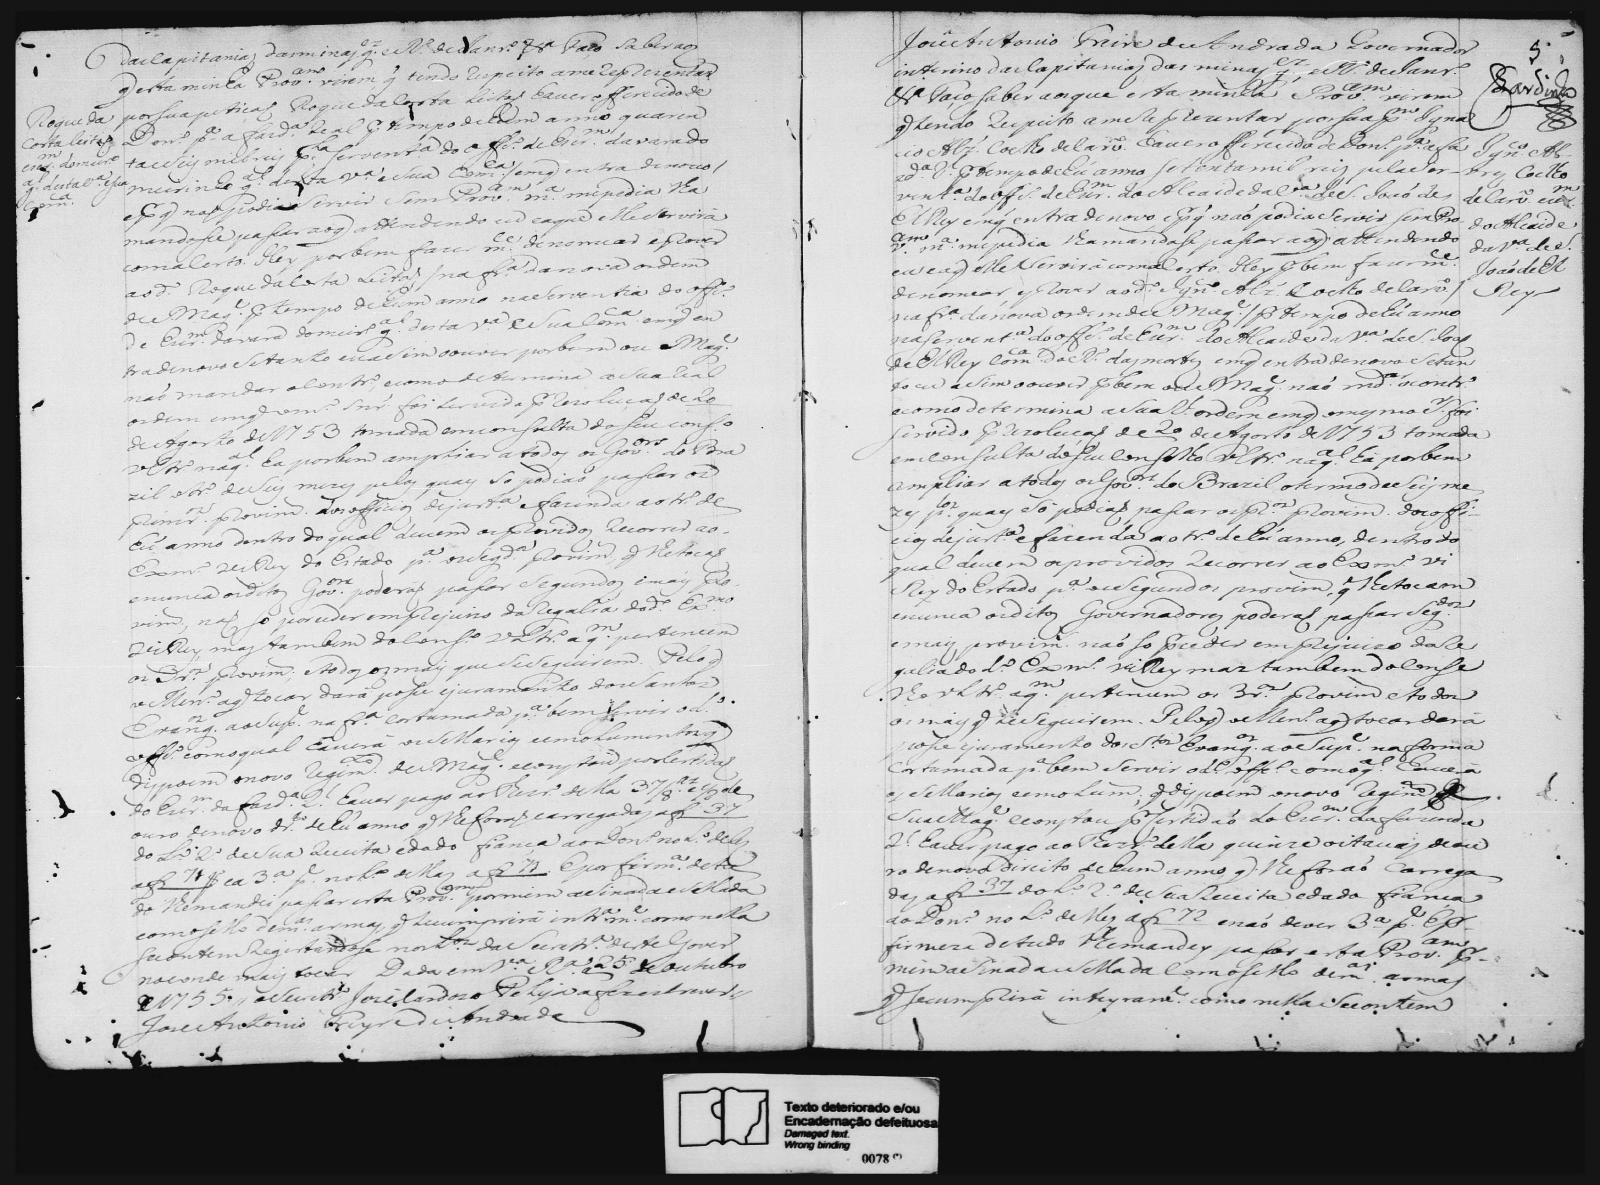 da Capitania das minas g.es e R.o de Janr.o &.a Faço saber aos
q̃ esta minha Prov.am virem q̃ tendo respeito a me reprezentar
por sua petiçaõ Roque da Costa Leitaõ haver offerecido de
Don.o p.a a fazd.a Real p̃ tempo de hum anno quaren
ta e seis mil reis p.la serventia do off.o de Escr.m da vara do
meirinho g.l desta v.a e sua Com.ca / em q̃ entra de novo /
e p̃ q̃ naõ podia servir sem Prov.am m.a me pedia lha
mandasse passar ao q̃ attendendo eu e a que elle servirá
com acerto. Hey por bem fazer m.ce de nomear e prover
ao d.o Roque da Costa Leitaõ / na fr.a da nova ordem
de S Mag.e p̃ tempo de hum anno na serventia do off.o
de Escr.m da vara do meir.o g.l desta v.a e sua Com.ca em q̃ en
tra de novo se tanto eu asim o ouver por bem ou S Mag.e
naõ mandar o contr.o como determina a sua Real
ordem em q̃ o m.mo Snr. foi servido p̃ rezoluçaõ de 20
de Agosto de 1753 tomada em consulta do seu cons.o
Ultr.o naq.al ha por bem ampliar a todos os Gov.ores do Bra
zil o tr.o de seis mezes pelos quaes só podiaõ passar os
primr.os provim. dos officios de just.a e fazenda ao tr.o de
hũ anno dentro do qual devem os providos recorrer ao
Exmo. V. Rey do Estado p.a os segd.os provim. q̃ lhe tocaõ
e nunca os ditos Gov.ores poderaõ passar segundos e mais pro
vim. naõ só por ceder em prejuizo da regalia do d.o Exmo
V. Rey mas tambem do Cons.o Ultr.o a q.m pertencem
os 3.os provim. e todos os mais que se seguirem. Pelo q̃
o Men.o a q̃ tocar dará posse e juramento dos Santos
Evang.os ao sup.e na fr.a costumada p.a bem servir o d.o
off.o com o qual haverá os sellarios e emolumentos q̃
dispoem o novo Regim.to de S Mag.e e constou por certidaõ
do Escr.m da fazd.a R.l haver pago ao Thezr.o della 37/8.as e 1/2 de
ouro de novo dr.to de hũ anno q̃ lhe foraõ carregadas a f 37
do L.o 2.o de sua receita e dado fiança ao Don.o no L.o dellas
a f 71 e a 3.a p.te no L.o dellas a f 71. E por firm.a de tu
do lhe mandei passar esta Prov.am por mim asinada e sellada
com o sello de m.as armas q̃ se cumprirá intr.am.e como nella
se contem registandose nos L.os da Secretr.a deste Gover
no e onde mais tocar. Dada em V.a R.a a 25 de outubro
de 1755. o Secretr.o José Cardozo Peleja a fez escrever //
Joze Antonio Freyre de Andrade
Roque da
Costa Leitaõ
escr.m do meir.o
g.l desta v.a e sua
Com.ca
5
Sardinha
José Antonio Freire de Andrada Governador
interino da Capitania das minas g.es e R.o de Janr.o
&.a Faço saber aos que esta minha Prov.am virem
q̃ tendo respeito a me reprezentar por sua p.am Igna
cio Alz. Coelho de Carv.o haver offerecido de Don.o p.a a fa
zd.a R.l p̃ tempo de hũ anno setenta mil reis pela ser
vent.a do off.o de Escr.m do Alcaide da V.a de S. Joaõ de
El Rey em q̃ entra de novo e p̃ q̃ naõ podia servir sem Pro
v.am m.a me pedia lha mandasse passar ao q̃ attendendo
eu e a q̃ elle servirá com acerto. Hey p̃ bem fazer m.ce
de nomear e prover ao d.o Ign.o Alz. Coelho de Carv.o /
na fr.a da nova ordem de S Mag.e / p̃ tempo de hũ anno
na servent.a do off.o de Escr.m do Alcaide da V.a de S. Joaõ
de El Rey Com.ca do R.o das mortes em q̃ entra de novo se tan
to eu asim o ouver p̃ bem ou S Mag.e naõ md.ar o contr.o
como determina a sua R.l ordem em q̃ o mesmo S.r foi
servido p̃ rezoluçaõ de 20 de Agosto de 1753 tomada
em consulta do seu conselho Ultr.o naq.al há por bem
ampliar a todos os Gov.ores do Brazil o termo de seis me
zes p.los quaes só podiaõ passar os pr.os provim. dos offi
cios de just.a e fazenda ao tr.o de hũ anno, dentro do
qual devem os providos recorrer ao Exmo. Vi
Rey do Estado p.a os segundos provim. q̃ lhe tocam
e nunca os ditos Governadores poderaõ passar seg.dos
e mais provim. naõ só p̃ ceder em prejuizo da Re
galia do d.o Exmo. Vi Rey mas tambem do Conse
lho Ultr.o a q.m pertencem os 3.os provim. e todos
os mais q̃ se seguirem. Pelo q̃ o Men.o a q̃ tocar dará
posse e juramento dos S.tos Evang.os ao Sup.e na forma
costumada p.a bem servir o d.o off.o com o q.l haverá
os sellarios e emolum. q̃ dispoem o novo Regim.to de
Sua Mag.e e constou p̃ sertidaõ do Escr.m da fazenda
R.l haver pago ao Thezr.o della quinze oitavas de ou
ro de novo direito de hum anno q̃ lhe foraõ carrega
das a f 37 do L.o 2.o de sua receita e dado fiança
ao Don.o no L.o dellas a f 72 e naõ dever 3.a p.te E p̃
firmeza de tudo lhe mandey passar esta Prov.am p̃
mim asinada e sellada com o sello de m.as armas
q̃ se cumprirá inteyram.e como nella se contem
Ign.o Al-
vrez Coelho
de Carv.o escr.m
do Alcaide
da V.a de S.
Joaõ de El
Rey
Texto deteriorado e/ou
Encadernação defeituosa
Damaged text.
Wrong binding
0078 (*)